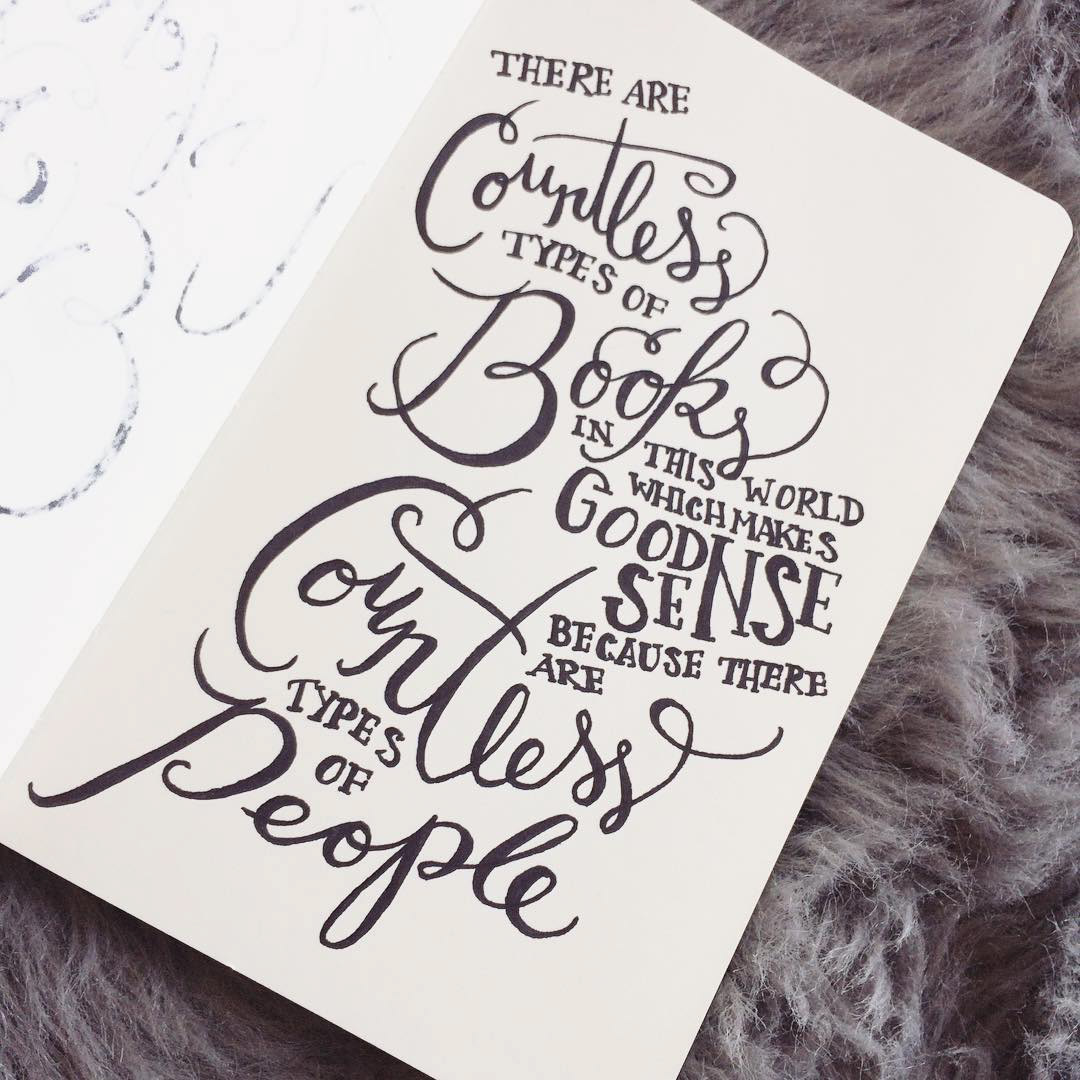 THERE ARE
Countless
TYPES OF
Books
IN THIS WORLD
WHICH MAKES
GOOD SENSE
BECAUSE THERE
ARE
Countless
TYPES
OF
People